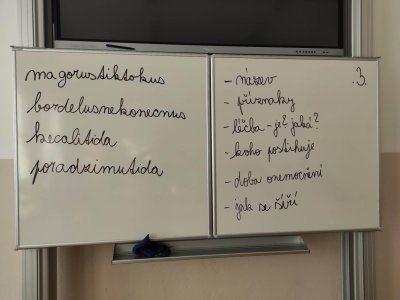 magorustiktokus
bordelusnekonecnus
kecalitida
poradzimutida
.3.
- název
- příznaky
- léčba - je? jaká?
- koho postihuje
- doba onemocnění
- jak se šíří